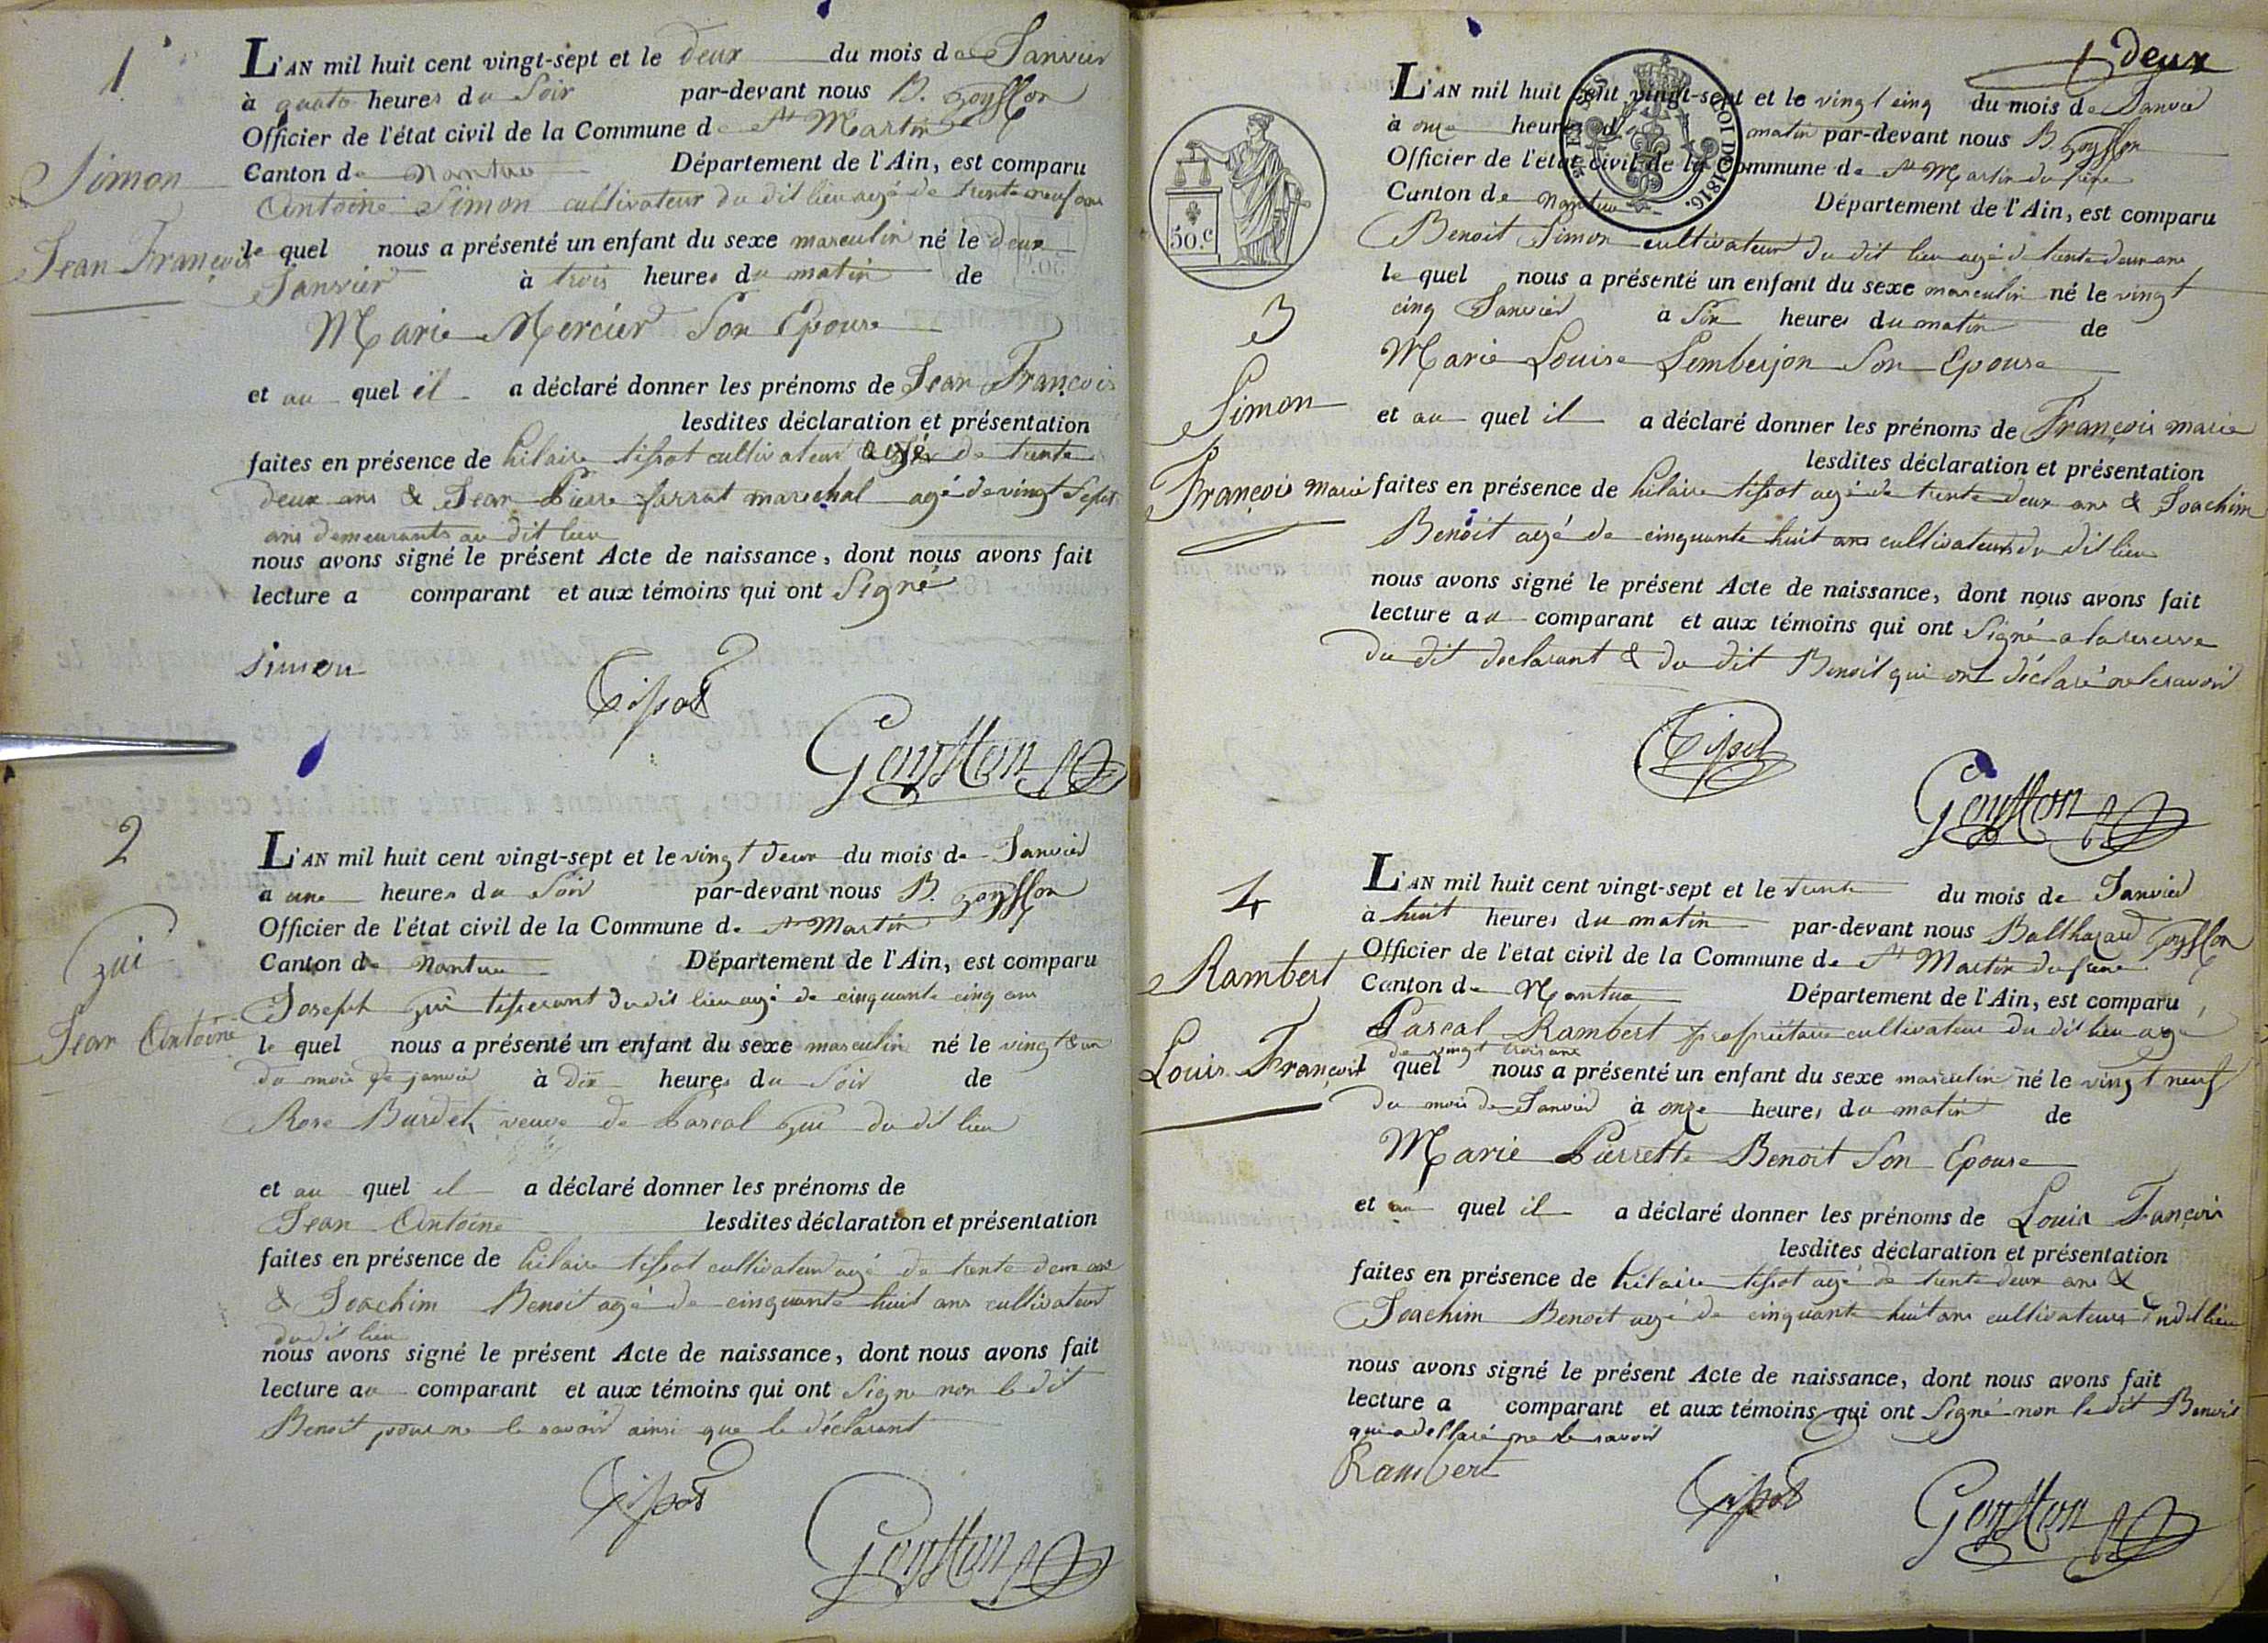 1
Simon
Jean François
L'AN mil huit cent vingt-sept et le deux du mois de Janvier
à quatre heures du Soir par-devant nous B. Goyffon
Officier de l'état civil de la Commune de St Martin
Canton de Nantua Département de l'Ain, est comparu
Antoine Simon cultivateur du dit lieu agé de trente neuf ans
le quel nous a présenté un enfant du sexe masculin né le deux
Janvier à trois heures du matin de
Marie Mercier Son Epouse
et au quel il a déclaré donner les prénoms de Jean François
lesdites déclaration et présentation
faites en présence de hilaire tissot cultivateur agé de trente
deux ans & Jean Pierre farrat marechal agé de vingt Sept
ans demeurants au dit lieu
nous avons signé le présent Acte de naissance, dont nous avons fait
lecture a comparant et aux témoins qui ont Signé
simon
Tissot
Goyffon
2
gui
Jean Antoine
L'AN mil huit cent vingt-sept et le vingt deux du mois de Janvier
à une heures du Soir par-devant nous B. Goyffon
Officier de l'état civil de la Commune de St Martin
Canton de Nantua Département de l'Ain, est comparu
Joseph gui tisserant du dit lieu agé de cinquante cinq ans
le quel nous a présenté un enfant du sexe masculin né le vingt & un
du mois de janvier à dix heures du Soir de
Rose Burdet veuve de Pascal gui du dit lieu
et au quel il a déclaré donner les prénoms de
Jean Antoine lesdites déclaration et présentation
faites en présence de hilaire tissot cultivateur agé de trente deux ans
& Joachim Benoit agé de cinquante huit ans cultivateur
du dit lieu
nous avons signé le présent Acte de naissance, dont nous avons fait
lecture au comparant et aux témoins qui ont Signe non le dit
Benoit pour ne le savoir ainsi que le déclarant
Tissot
Goyffon
deux
50.c
LOI DE 1816.
3
Simon
François marie
L'AN mil huit cent vingt-sept et le vingt cinq du mois de Janvier
à onze heures du matin par-devant nous B Goyffon
Officier de l'état civil de la Commune de St Martin du frêne
Canton de Nantua Département de l'Ain, est comparu
Benoit Simon cultivateur du dit lieu agé de trente deux ans
le quel nous a présenté un enfant du sexe masculin né le vingt
cinq Janvier à Six heures du matin de
Marie Louise Lemberjon Son Epouse
et au quel il a déclaré donner les prénoms de François marie
lesdites déclaration et présentation
faites en présence de hilaire tissot agé de trente deux ans & Joachim
Benoit agé de cinquante huit ans cultivateurs du dit lieu
nous avons signé le présent Acte de naissance, dont nous avons fait
lecture au comparant et aux témoins qui ont Signé a la reserve
du dit declarant & du dit Benoit qui ont déclaré ne le savoir
Tissot
Goyffon
4
Rambert
Louis François
L'AN mil huit cent vingt-sept et le trente du mois de Janvier
à huit heures du matin par-devant nous Balthazard Goyffon
Officier de l'état civil de la Commune de St Martin du frêne
Canton de Nantua Département de l'Ain, est comparu
Pascal Rambert propriétaire cultivateur du dit lieu agé
de vingt trois ans
quel nous a présenté un enfant du sexe masculin né le vingt neuf
du mois de Janvier à onze heures du matin de
Marie Pierrette Benoit Son Epouse
et au quel il a déclaré donner les prénoms de Louis Fançois
lesdites déclaration et présentation
faites en présence de hilaire tissot agé de trente deux ans &
Joachim Benoit agé de cinquante huit ans cultivateurs du dit lieu
nous avons signé le présent Acte de naissance, dont nous avons fait
lecture a comparant et aux témoins qui ont Signé non le dit Benoit
qui a dellaré ne le savoir
Rambert
Tissot
Goyffon